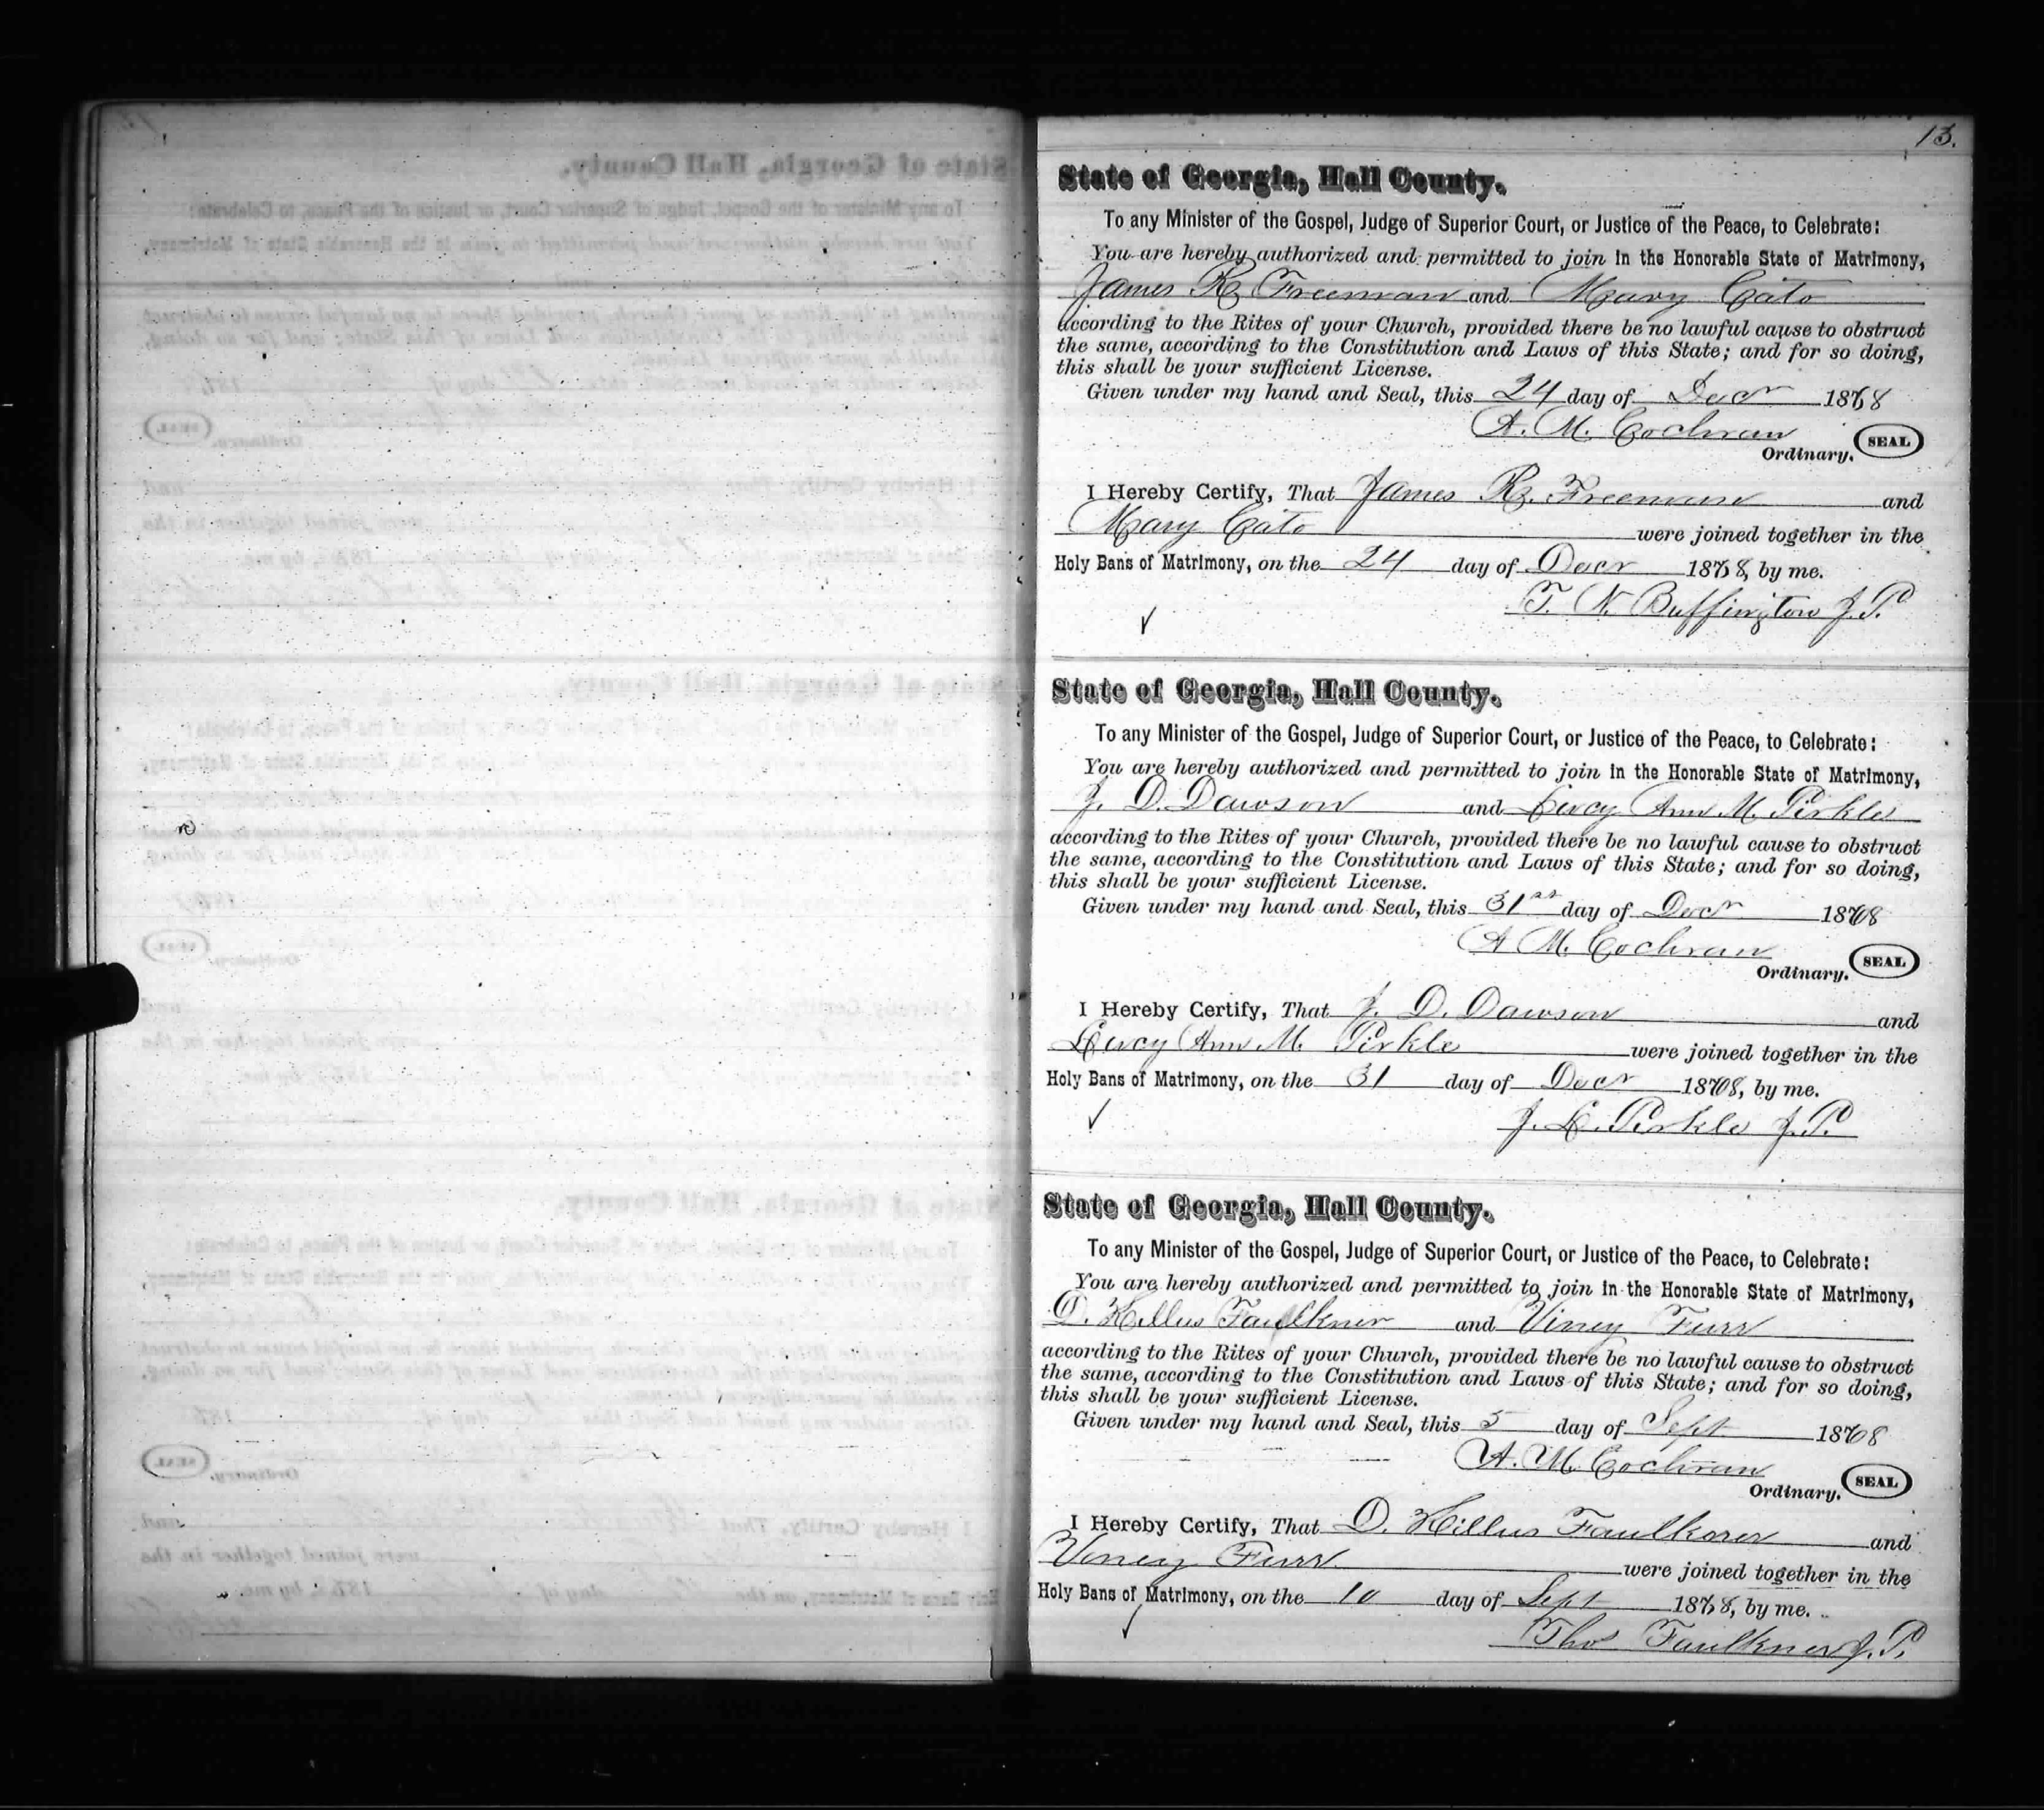 13.
State of Georgia, Hall County.
To any Minister of the Gospel, Judge of Superior Court, or Justice of the Peace, to Celebrate:
You are hereby authorized and permitted to join in the Honorable State of Matrimony,
James R. Freeman and Mary Cato
according to the Rites of your Church, provided there be no lawful cause to obstruct
the same, according to the Constitution and Laws of this State; and for so doing,
this shall be your sufficient License.
Given under my hand and Seal, this 24 day of Decr 1868
A. M. Cochran
Ordinary. SEAL
I Hereby Certify, That James R. Freeman and
Mary Cato were joined together in the
Holy Bans of Matrimony, on the 24 day of Decr 1868, by me.
T. N. Buffington J. P.
State of Georgia, Hall County.
To any Minister of the Gospel, Judge of Superior Court, or Justice of the Peace, to Celebrate:
You are hereby authorized and permitted to join in the Honorable State of Matrimony,
J. D. Dawson and Lucy Ann M. Pirkle
according to the Rites of your Church, provided there be no lawful cause to obstruct
the same, according to the Constitution and Laws of this State; and for so doing,
this shall be your sufficient License.
Given under my hand and Seal, this 31st day of Decr 1868
A M. Cochran
Ordinary. SEAL
I Hereby Certify, That J. D. Dawson and
Lucy Ann M. Pirkle were joined together in the
Holy Bans of Matrimony, on the 31 day of Decr 1868, by me.
J. L. Pirkle J. P.
State of Georgia, Hall County.
To any Minister of the Gospel, Judge of Superior Court, or Justice of the Peace, to Celebrate:
You are hereby authorized and permitted to join in the Honorable State of Matrimony,
D. Hillus Faulkner and Viney Furr
according to the Rites of your Church, provided there be no lawful cause to obstruct
the same, according to the Constitution and Laws of this State; and for so doing,
this shall be your sufficient License.
Given under my hand and Seal, this 5 day of Sept 1868
A. M. Cochran
Ordinary. SEAL
I Hereby Certify, That D. Hillus Faulkner and
Viney Furr were joined together in the
Holy Bans of Matrimony, on the 10 day of Sept 1868, by me.
Thos Faulkner J. P.